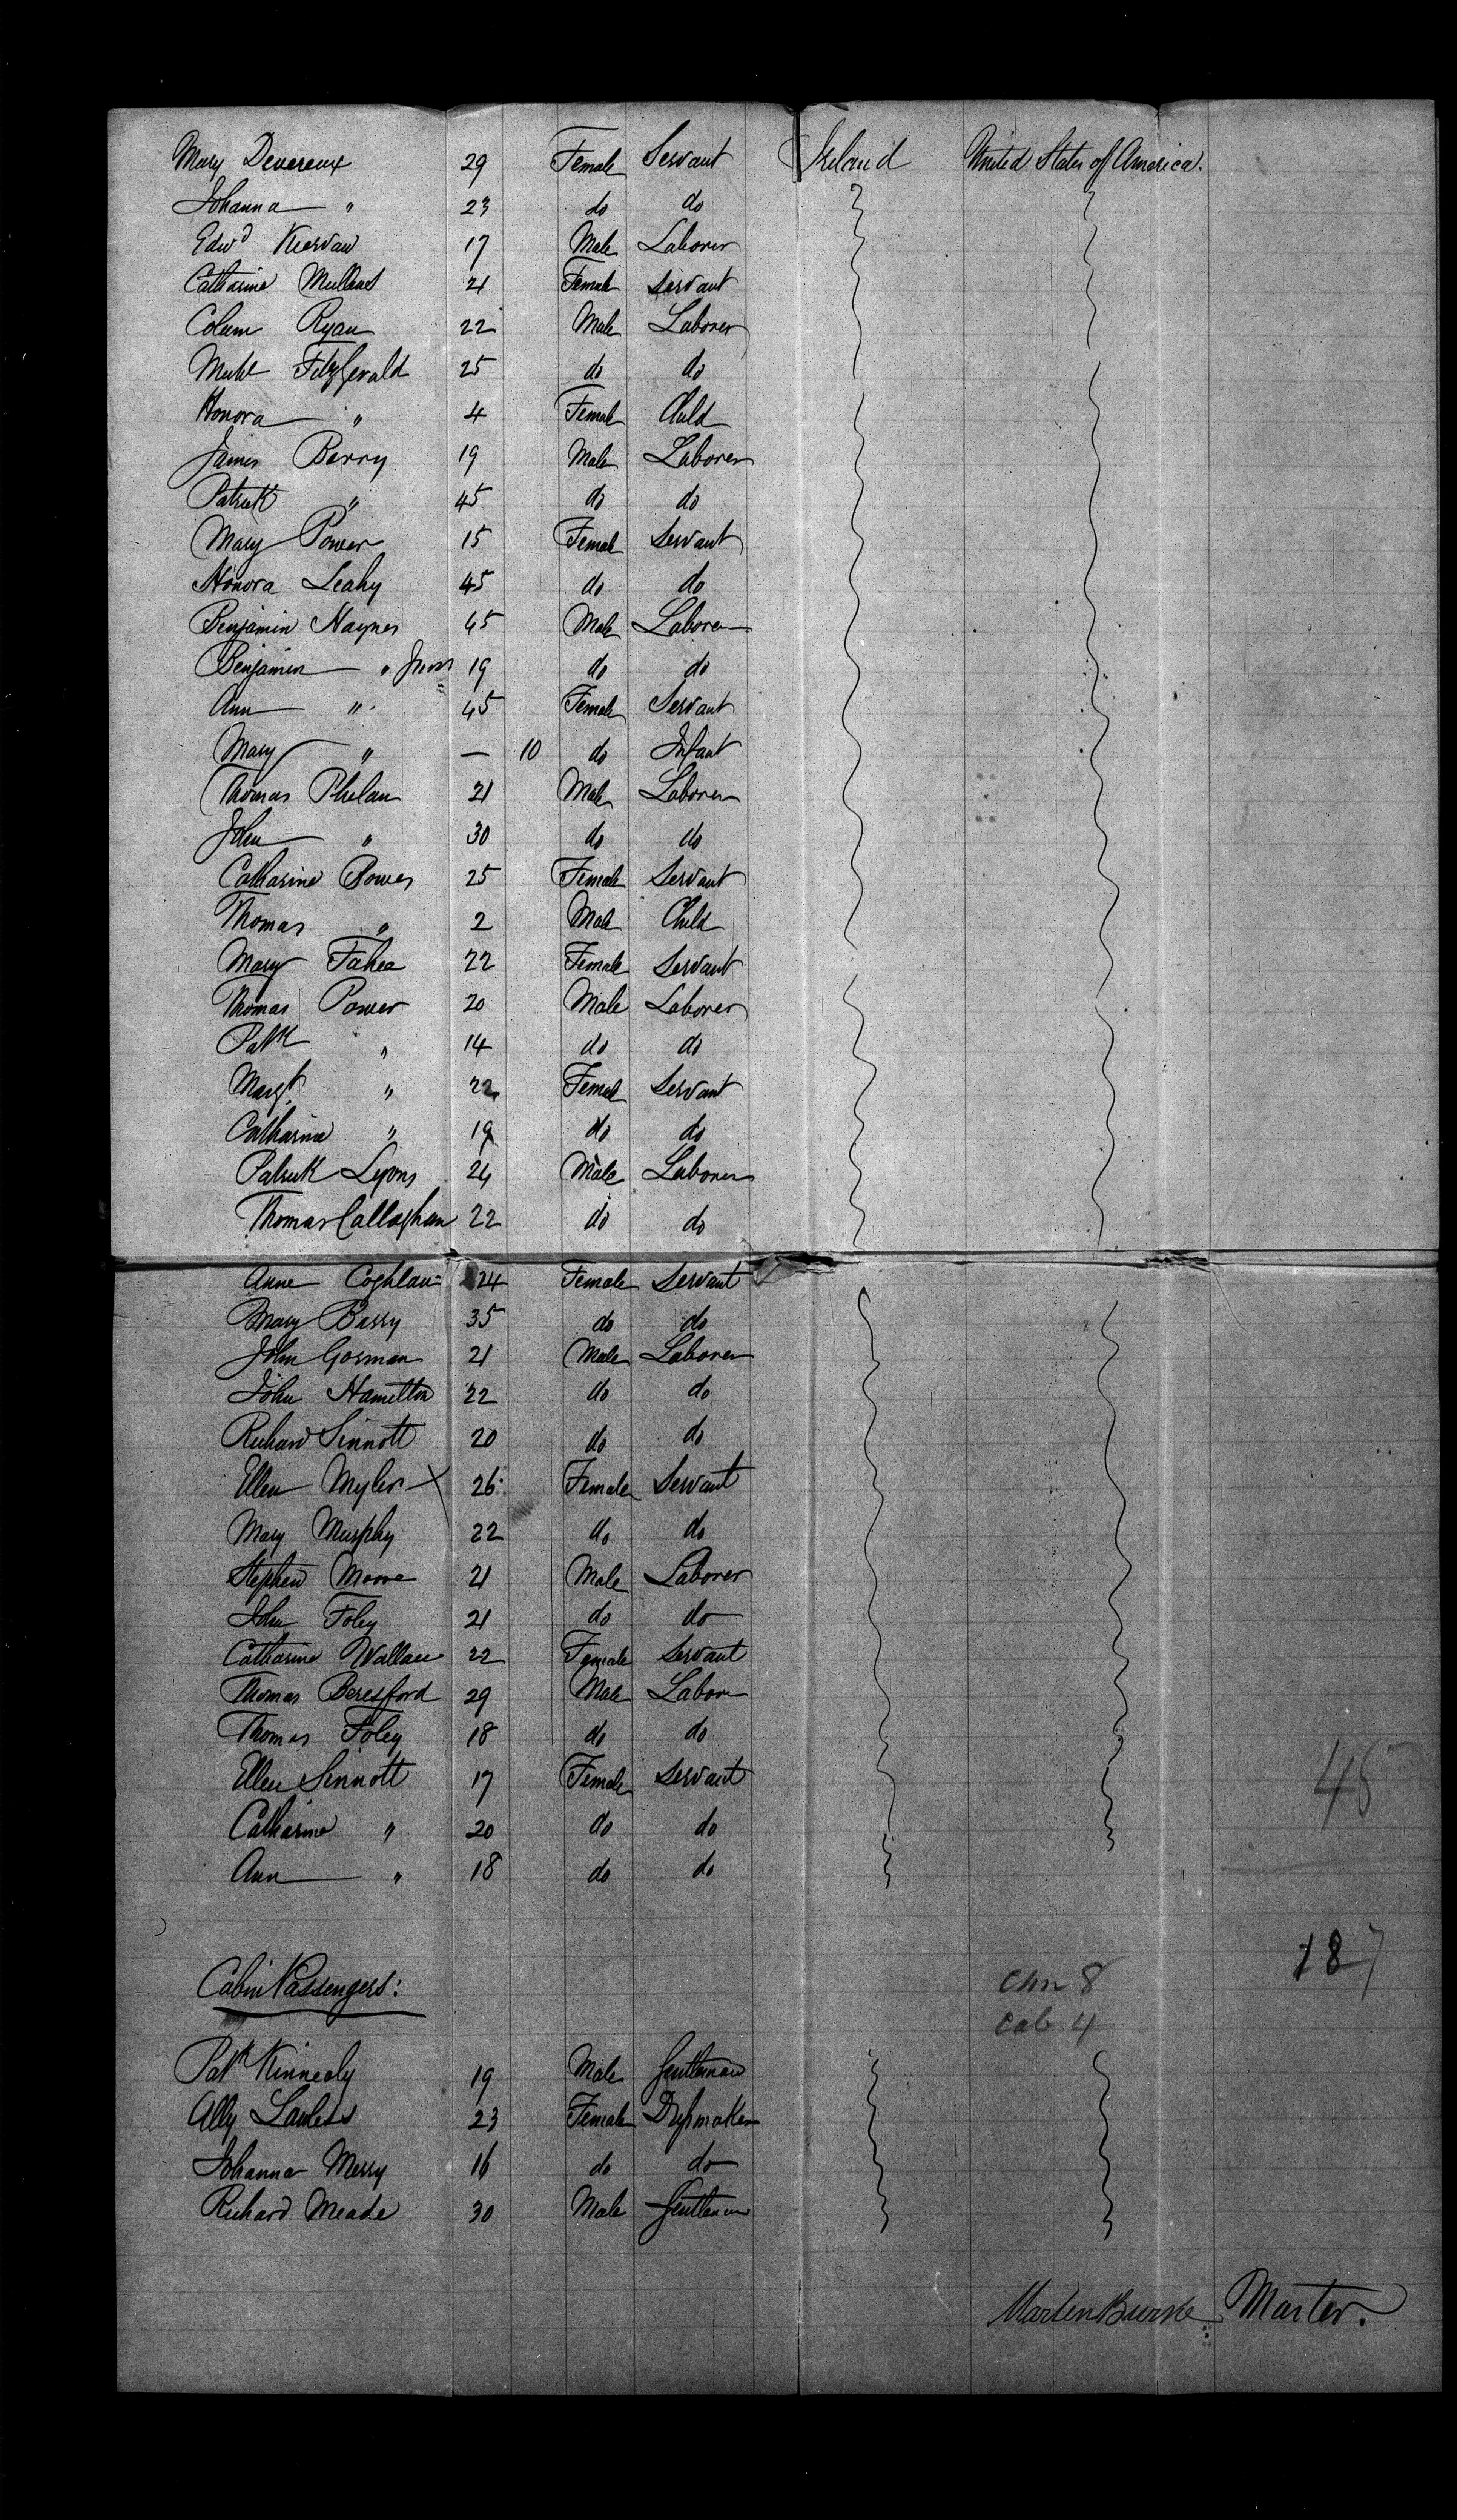 Mary Devereux 29 Female Servant Ireland United States of America.
Johanna " 23 do do
Edwd Kiervan 17 Male Laborer
Catharine Mullens 21 Female Servant
Colum Ryan 22 Male Laborer
Michl FitzGerald 25 do do
Honora " 4 Female Child
James Barry 19 Male Laborer
Patrick " 45 do do
Mary Power 15 Female Servant
Honora Leahy 45 do do
Benjamin Haynes 45 Male Laborer
Benjamin " Junr 19 do do
Ann " 45 Female Servant
Mary " — 10 do Infant
Thomas Phelan 21 Male Laborer
John " 30 do do
Catharine Power 25 Female Servant
Thomas " 2 Male Child
Mary Fahea 22 Female Servant
Thomas Power 20 Male Laborer
Patk " 14 do do
Margt. " 22 Female Servant
Catharine " 19 do do
Patrick Lyons 24 Male Laborer
Thomas Callaghan 22 do do
Anne Coghlan 24 Female Servant
Mary Barry 35 do do
John Gorman 21 Male Laborer
John Hamilton 22 do do
Richard Sinnott 20 do do
Ellen Myler X 26 Female Servant
Mary Murphy 22 do do
Stephen Moore 21 Male Laborer
John Foley 21 do do
Catharine Wallace 22 Female Servant
Thomas Beresford 29 Male Labor
Thomas Foley 18 do do
Ellen Sinnott 17 Female Servant
Catharine " 20 do do
Ann " 18 do do
187
Cabin Passengers:
Chn 8
Cab 4
Patk Kinnealy 19 Male Gentleman
Ally Lawless 23 Female Dressmaker
Johanna Merry 16 do do
Richard Meade 30 Male Gentleman
Martin Burke Master.